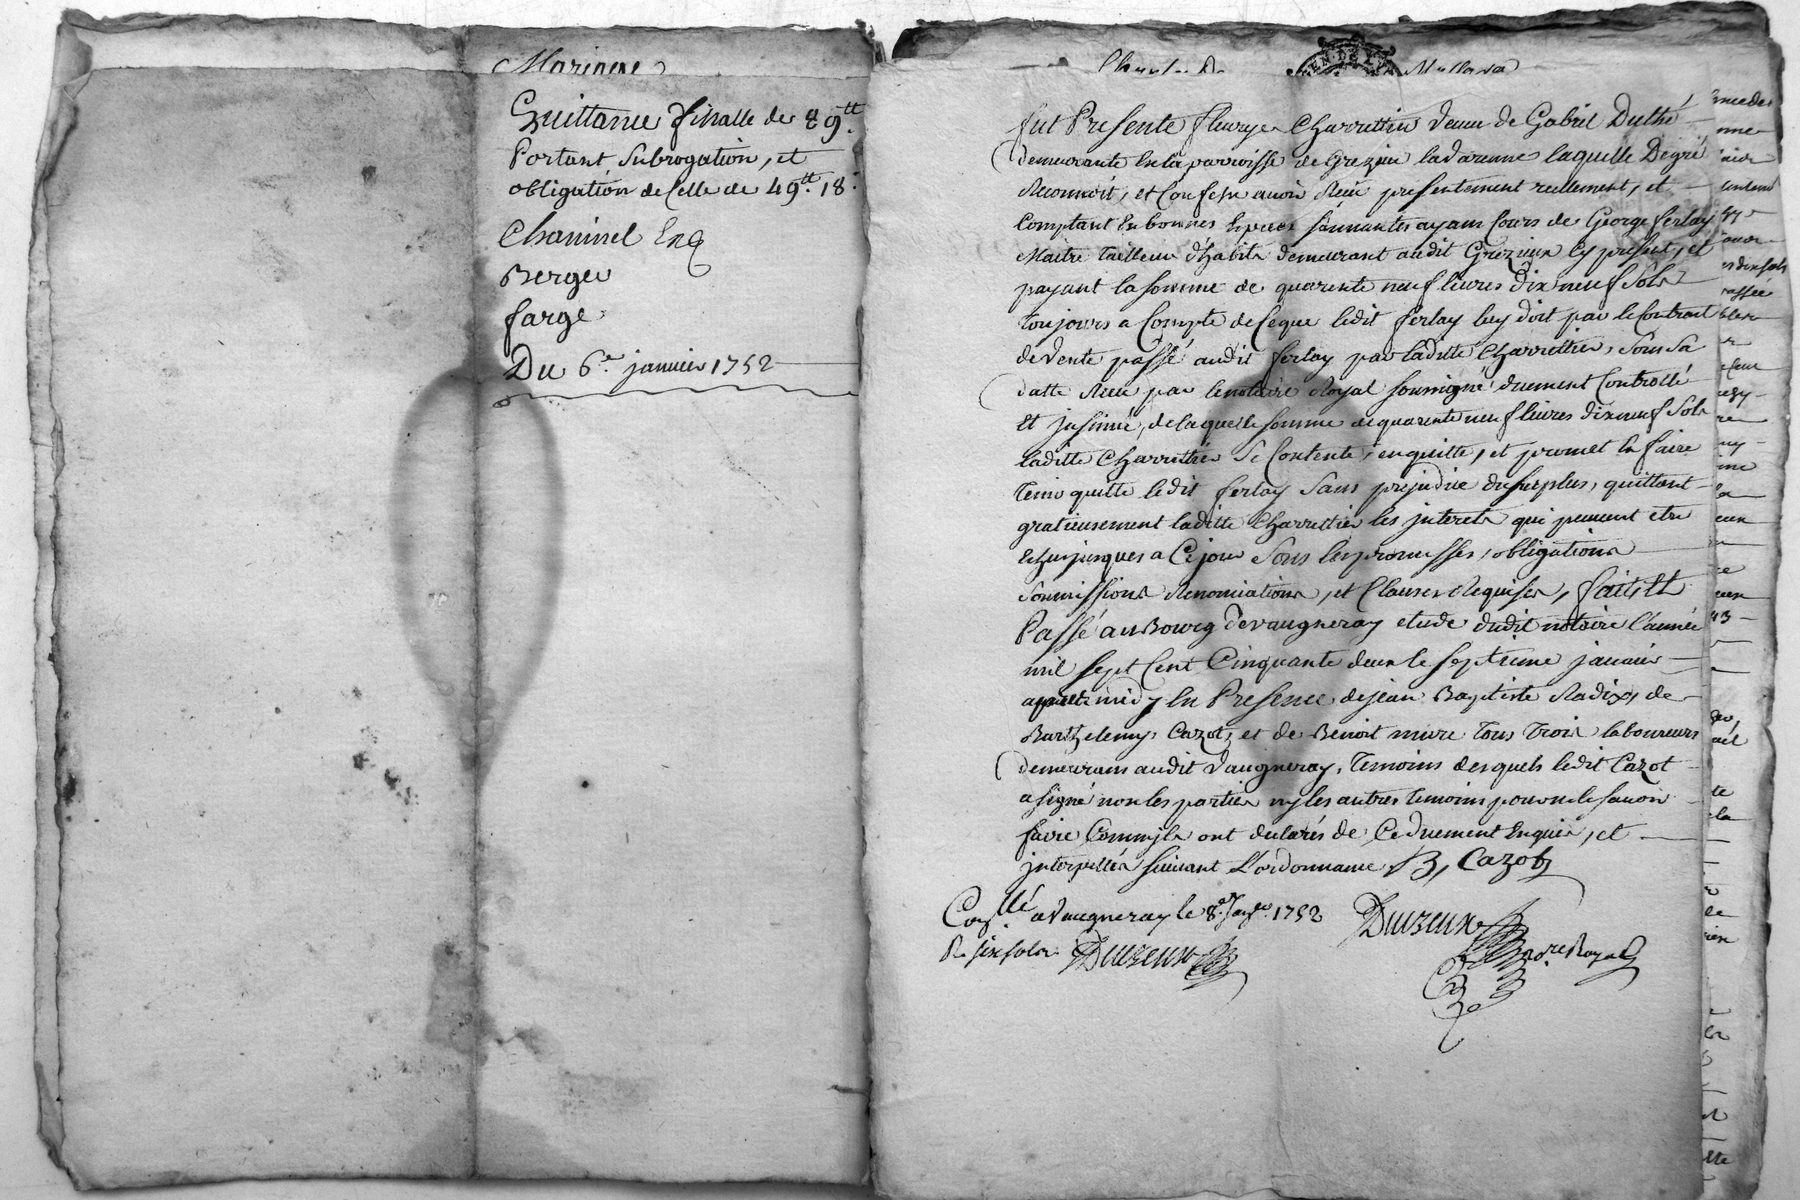 Mariage
Quittance finalle de 89.tt
Portant Subrogation, et
obligation de Celle de 49.tt 18.s
Chaninel
Berger
farge
Du 6.e janvier 1752
fut Presente fleurye Charrettier veuve de Gabriel Duthé
demeurante En la parroisse de Grezieu lavarenne laquelle De gré
Reconnoit, et Confesse avoir Receu presentement reellement, et
Comptant En bonnes Especes sonnantes ayans Cours de George ferlay
Maitre tailleur d'habits demeurant audit Grezieu Cy present, et
payant la somme de quarente neuf livres dix neuf Sols
toujours a Compte de Ceque ledit ferlay luy doit par le Contrat
de Vente passé audit ferlay par laditte Charrettier, Sous Sa
datte Receu par le notaire Royal soussigné duement Controllé
Et jnsinué, de laquelle somme de quarente neuf livres dix neuf Sols
laditte Charrettier Se Contente, en quitte, et promet En faire
tenir quitte ledit ferlay Sans prejudice du surplus, quittant
gratieusement laditte Charrettier les jnterets qui peuvent etre
Echus jusques a Ce jour Sous les promesses, obligations
Soumissions Renonciations, et Clauses Requises, fait, Et
Passé au Bourg de Vaugneray etude dudit notaire l'année
mil sept Cent Cinquante deux le septieme janvier
apres midy En Presence de jean Baptiste Radix, de
Barthelemy Cazot, et de Benoit mure tous trois laboureurs
demeurans audit Vaugneray, temoins desquels ledit Cazot
a signé non les parties ny les autres temoins pour ne le savoir
faire Comm'ils ont declarés de Ce duement Enquis, et
jnterpellés suivant L'ordonnance B, Cazot
Con.llé a Vaugneray le 8.e Janv.er 1752
R. six sols Duizeux
Duizeux
no.re Royal